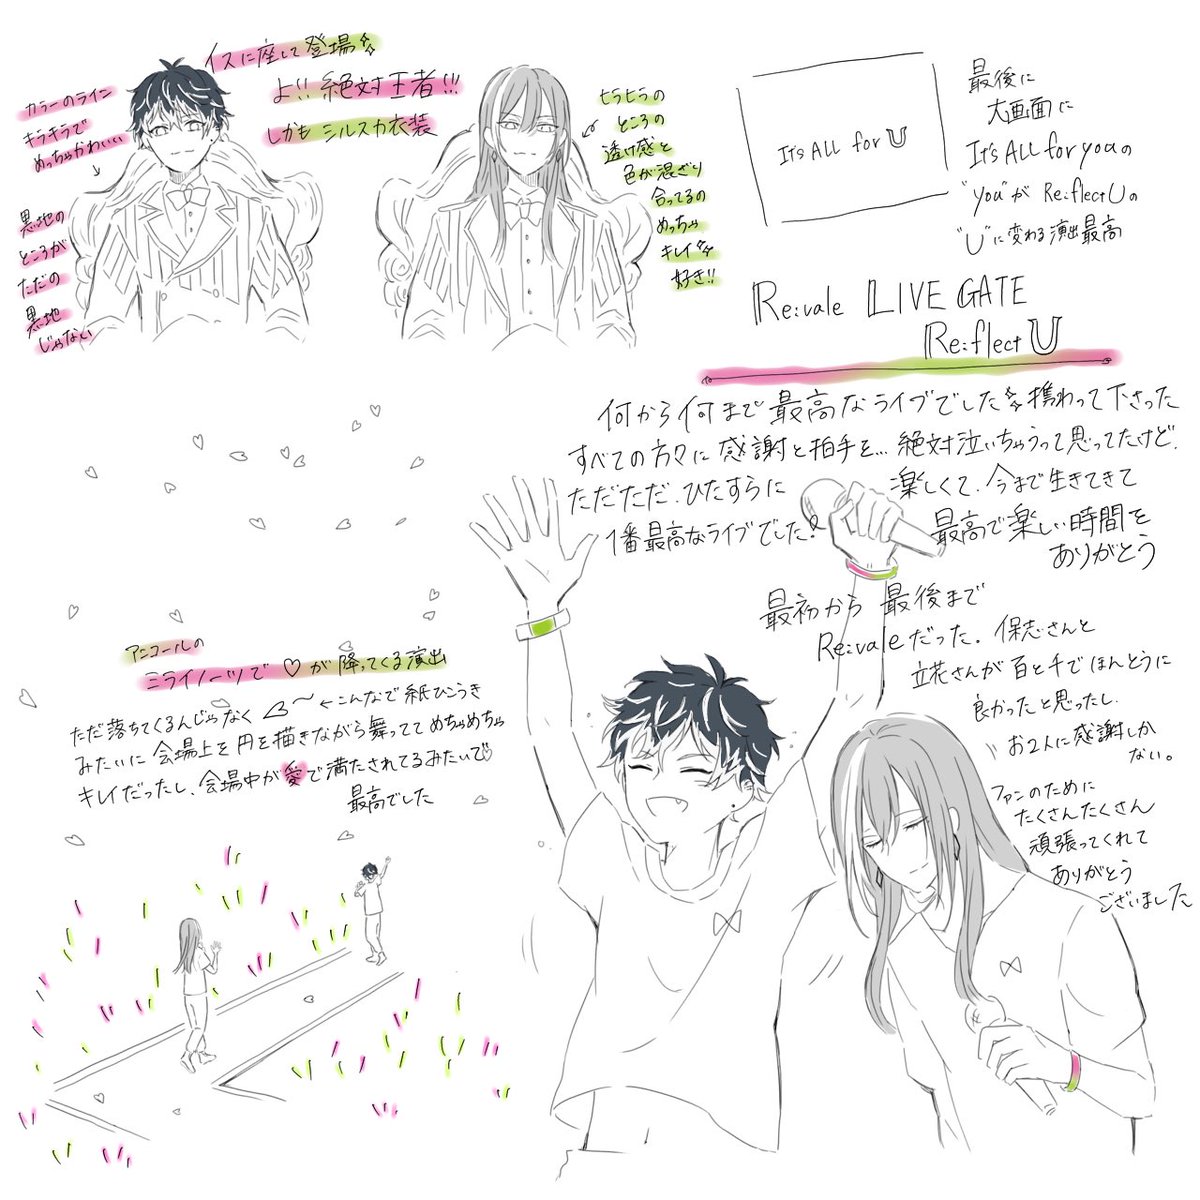 イスに座して登場
よ!! 絶対王者!!!
しかも シルスカ衣装
カラーのライン
キラキラで
めっちゃかわいい
黒地の
ところが
ただの
黒地
じゃない
ヒラヒラの
ところの
透け感と
色が混ざり
合ってるの
めっちゃ
キレイ
好き!!
It's ALL for U
最後に
大画面に
It's ALL for youの
"you"が Re:flect Uの
"U"に変わる演出最高
Re:vale LIVE GATE
Re:flect U
何から何まで最高なライブでした 携わって下さった
すべての方々に感謝と拍手を… 絶対泣いちゃうって思ってたけど、
ただただ、ひたすらに 楽しくて、今まで生きてきて
1番最高なライブでした! 最高で楽しい時間を
ありがとう
最初から 最後まで
Re:valeだった。保志さんと
立花さんが百と千でほんとうに
良かったと思ったし、
お2人に感謝しか
ない。
ファンのために
たくさんたくさん
頑張ってくれて
ありがとう
ございました
アンコールの
ミライノーツで ♡が降ってくる演出
ただ落ちてくるんじゃなく ←こんなで紙ひこうき
みたいに 会場上を円を描きながら舞ってて めちゃめちゃ
キレイだったし、会場中が愛で満たされてるみたいで♡
最高でした